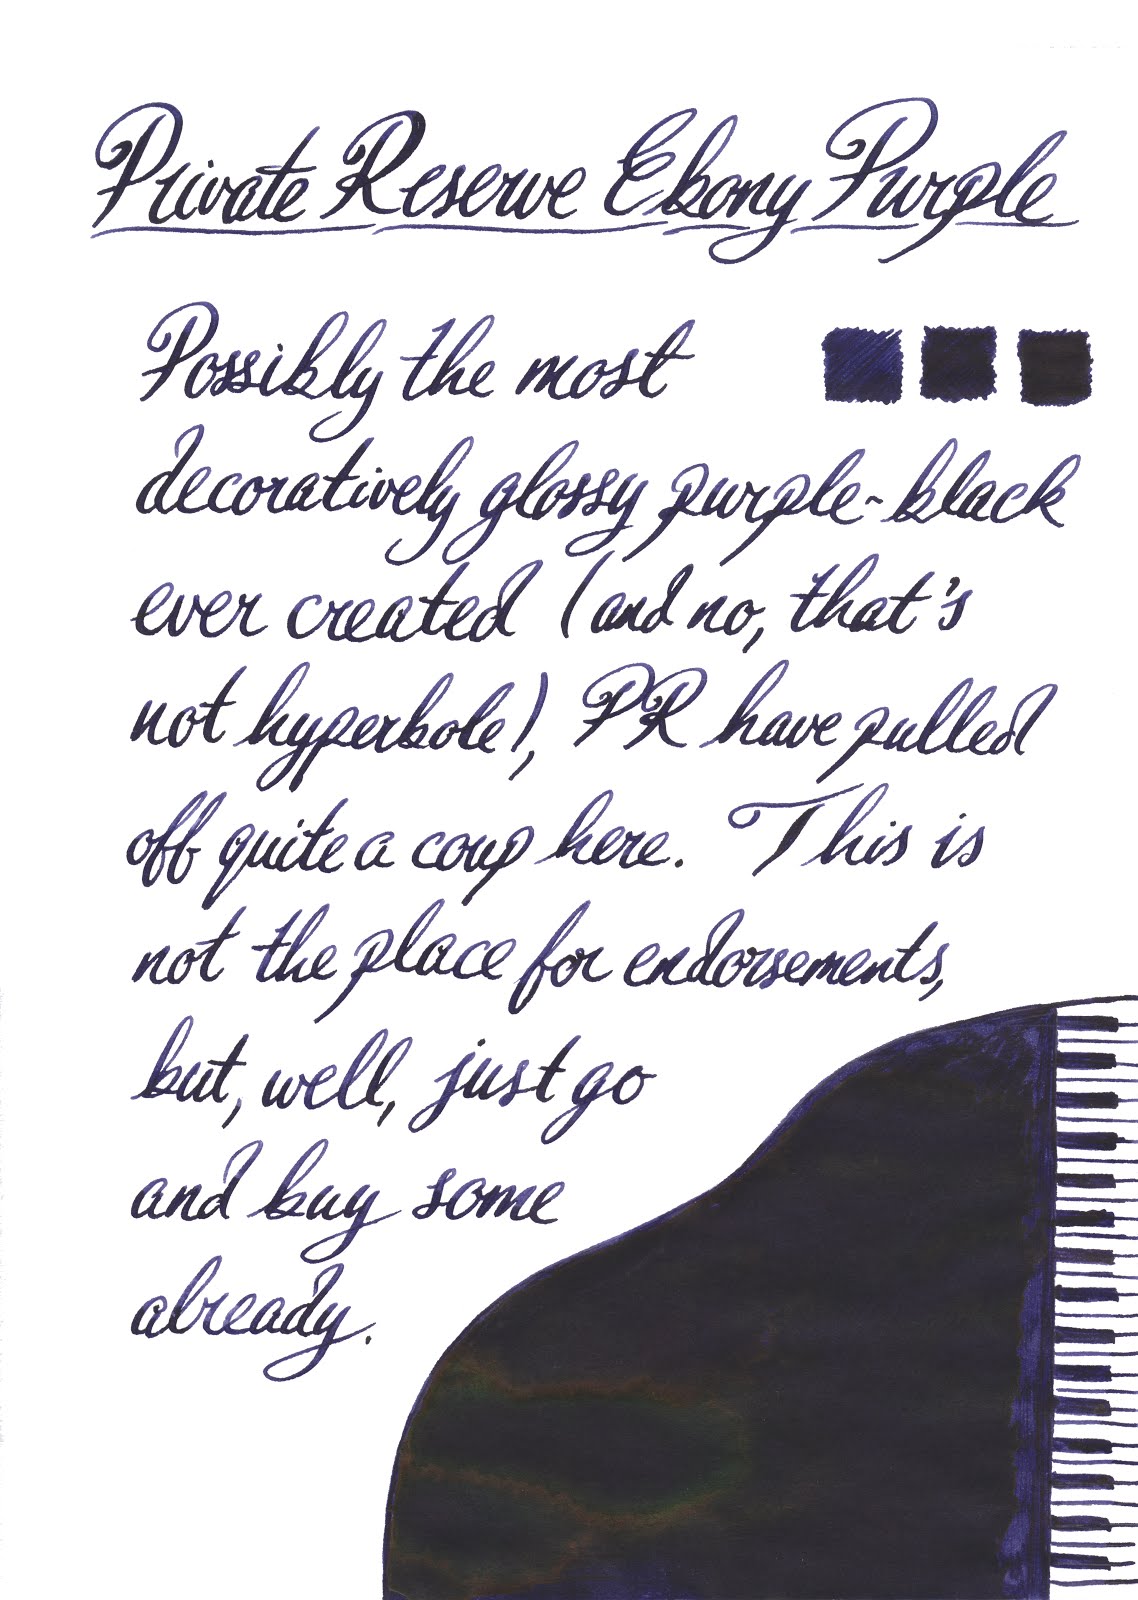 Private Reserve Ebony Purple
Possibly the most
decoratively glossy purple-black
ever created (and no, that's
not hyperbole), PR have pulled
off quite a coup here. This is
not the place for endorsements,
but, well, just go
and buy some
already.